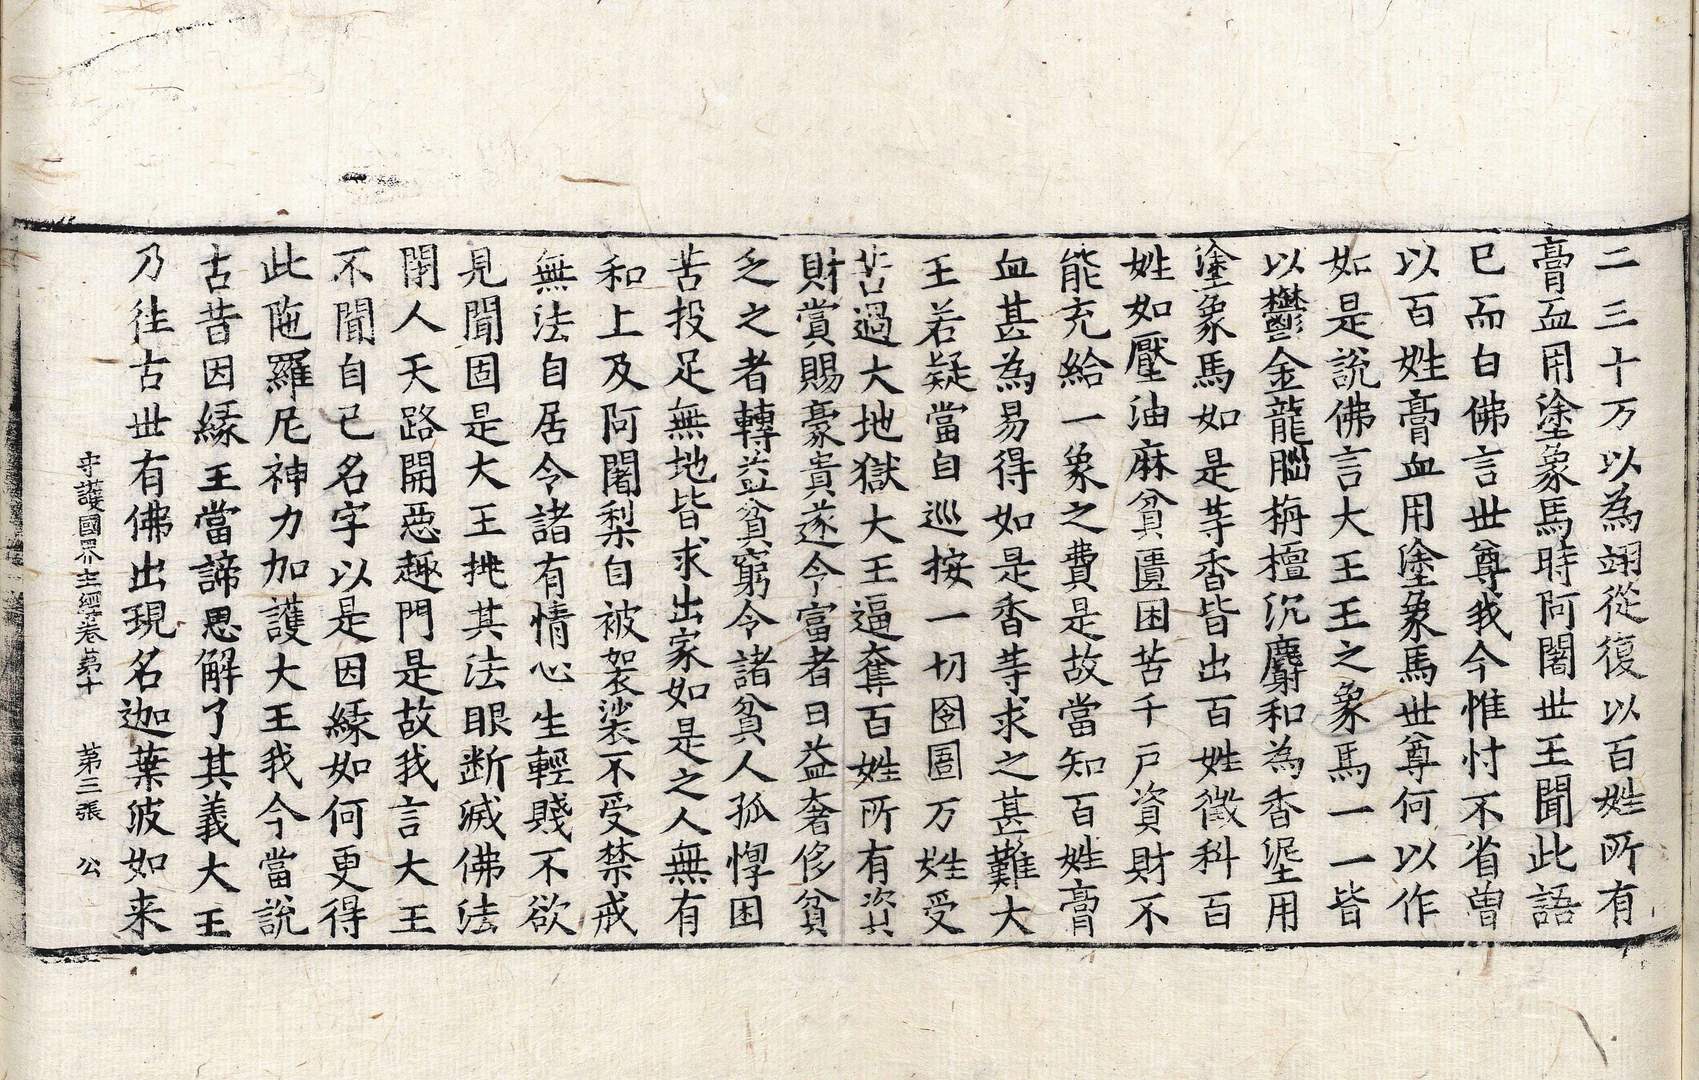 二三十万以為翊從復以百姓所有
膏血用塗象馬時阿闍世王聞此語
已而白佛言世尊我今惟忖不省曽
以百姓膏血用塗象馬世尊何以作
如是說佛言大王王之象馬一一皆
以鬱金龍腦栴檀沉麝和為香埿用
塗象馬如是等香皆出百姓徵科百
姓如壓油麻貧匱困苦千戶資財不
能充給一象之費是故當知百姓膏
血甚為易得如是香等求之甚難大
王若疑當自巡按一切囹圄万姓受
苦過大地獄大王逼奪百姓所有資
財賞賜豪貴遂令富者日益奢侈貧
乏之者轉益貧窮令諸貧人孤惸困
苦投足無地皆求出家如是之人無有
和上及阿闍梨自被袈裟不受禁戒
無法自居令諸有情心生輕賤不欲
見聞固是大王挑其法眼断滅佛法
閇人天路開惡趣門是故我言大王
不聞自己名字以是因緣如何更得
此陁羅尼神力加護大王我今當說
古昔因緣王當諦思解了其義大王
乃往古世有佛出現名迦葉波如来
守護國界主經卷第十　第三張　公